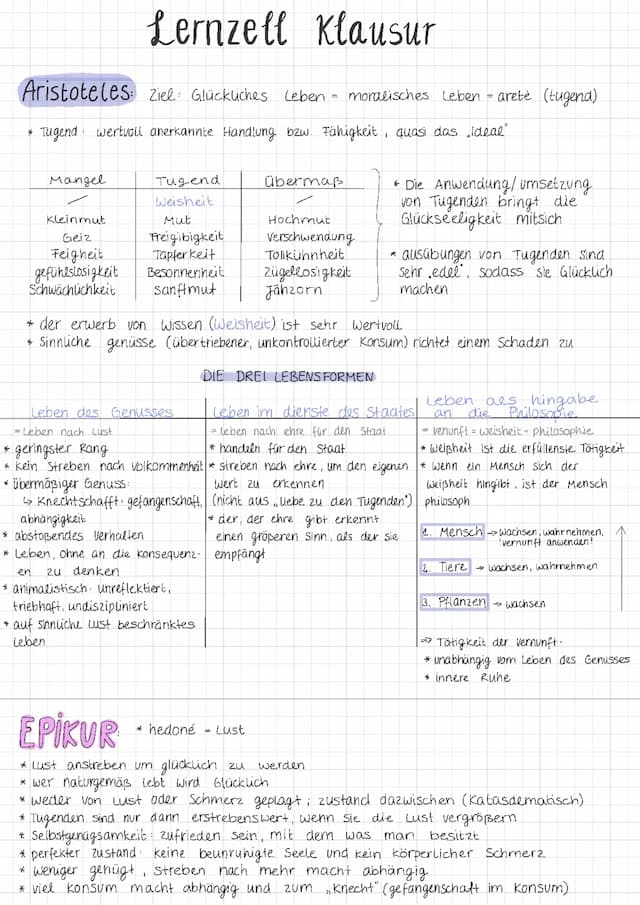 Lernzell Klausur
Aristoteles: Ziel: Glückliches Leben = moralisches Leben = areté (tugend)
* Tugend: wertvoll anerkannte Handlung bzw. Fähigkeit, quasi das „ideal"
Mangel Tugend Übermaß
/ Weisheit /
Kleinmut Mut Hochmut
Geiz Freigibigkeit Verschwendung
Feigheit Tapferkeit Tollkühnheit
gefühlslosigkeit Besonnenheit Zügellosigkeit
Schwächlichkeit Sanftmut Jähzorn
* Die Anwendung/umsetzung
von Tugenden bringt die
Glückseeligkeit mitsich
* ausübungen von Tugenden sind
sehr „edel", sodass sie Glücklich
machen
* der erwerb von Wissen (Weisheit) ist sehr wertvoll
* Sinnliche genüsse (übertriebener, unkontrollierter Konsum) richtet einem Schaden zu
DIE DREI LEBENSFORMEN
Leben des Genusses
= Leben nach Lust
* geringster Rang
* kein Streben nach Volkommenheit
* übermäßiger Genuss:
↳ Knechtschafft: gefangenschaft,
abhängigkeit
* abstoßendes Verhalten
* Leben, ohne an die Konsequenz-
en zu denken
* animalistisch: unreflektiert,
triebhaft, undiszipliniert
* auf sinnliche Lust beschränktes
Leben
Leben im dienste des Staates
= leben nach ehre für den Staat
* handeln für den Staat
* streben nach ehre, um den eigenen
wert zu erkennen
(nicht aus „Liebe zu den Tugenden")
* der, der ehre gibt erkennt
einen größeren Sinn, als der sie
empfängt
Leben als hingabe
an die Philosopie
= vernunft = weisheit = philosophie
* Weißheit ist die erfüllenste Tätigkeit
* wenn ein Mensch sich der
weißheit hingibt, ist der Mensch
philosoph
1. Mensch → wachsen, wahrnehmen,
vernunft anwenden!
2. Tiere → wachsen, wahrnehmen
3. Pflanzen → wachsen
⇒ Tätigkeit der vernunft:
* unabhängig vom Leben des Genusses
* innere Ruhe
EPIKUR: * hedoné = Lust
* Lust anstreben um glücklich zu werden
* wer naturgemäß lebt wird Glücklich
* weder von Lust oder Schmerz geplagt; zustand dazwischen (Katasdematisch)
* Tugenden sind nur dann erstrebenswert, wenn sie die Lust vergrößern
* Selbstgenügsamkeit: zufrieden sein, mit dem was man besitzt
* perfekter zustand: keine beunruhigte Seele und kein körperlicher Schmerz
* weniger genügt, streben nach mehr macht abhängig
* viel Konsum macht abhängig und zum „Knecht" (gefangenschaft im Konsum)